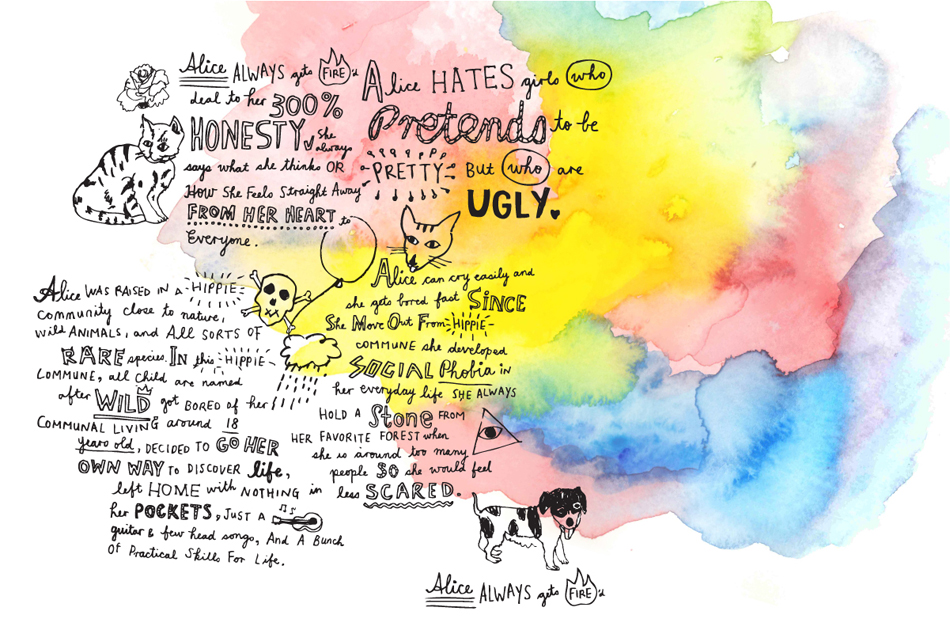 Alice ALWAYS gets FIRE'd
deal to her 300%
HONESTY, she always
says what she thinks OR
How She Feels Straight Away
FROM HER HEART to
Everyone.
Alice HATES girls who
Pretends to be
PRETTY But who are
UGLY.
Alice WAS RAISED IN A HIPPIE
community close to nature,
wild ANIMALS, and All SORTS OF
RARE species. In this HIPPIE
COMMUNE, all child are named
after WILD got BORED of her
COMMUNAL LIVING around 18
years old, DECIDED TO GO HER
OWN WAY TO DISCOVER life,
left HOME with NOTHING in
her POCKETS, JUST A
guitar & few head songs, And A Bunch
Of Practical Skills For Life.
Alice can cry easily and
she gets bored fast SINCE
She Move Out From HIPPIE
COMMUNE she developed
SOCIAL Phobia in
her everyday life SHE ALWAYS
HOLD A Stone FROM
HER FAVORITE FOREST when
she is around too many
people SO she would feel
less SCARED.
Alice ALWAYS gets FIRE'd